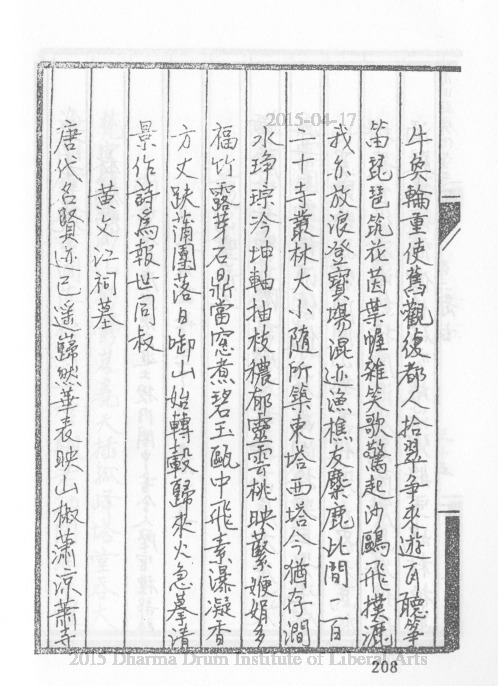 牛奐輪重使舊觀復都人拾翠爭來遊一聽箏
笛琵琶筑花茵葉幄雜笑歌驚起沙鷗飛撲漉
我亦放浪登寶塲混迹漁樵友麋鹿此間一百
二十寺叢林大小隨所築東塔西塔今猶存澗
水琤琮冷坤軸抽枝穠郁靈雲桃映蘂嫂娟多
福竹露芽石鼎當窓煮碧玉甌中飛素瀑凝香
方丈趺蒲團落日啣山始轉轂歸來火急摹清
景作詩爲報世同叔
黃文江祠墓
唐代名賢迹已遥巋然華表映山椒蕭涼蕭寺
2015-04-17
2015 Dharma Drum Institute of Liberal Arts
208